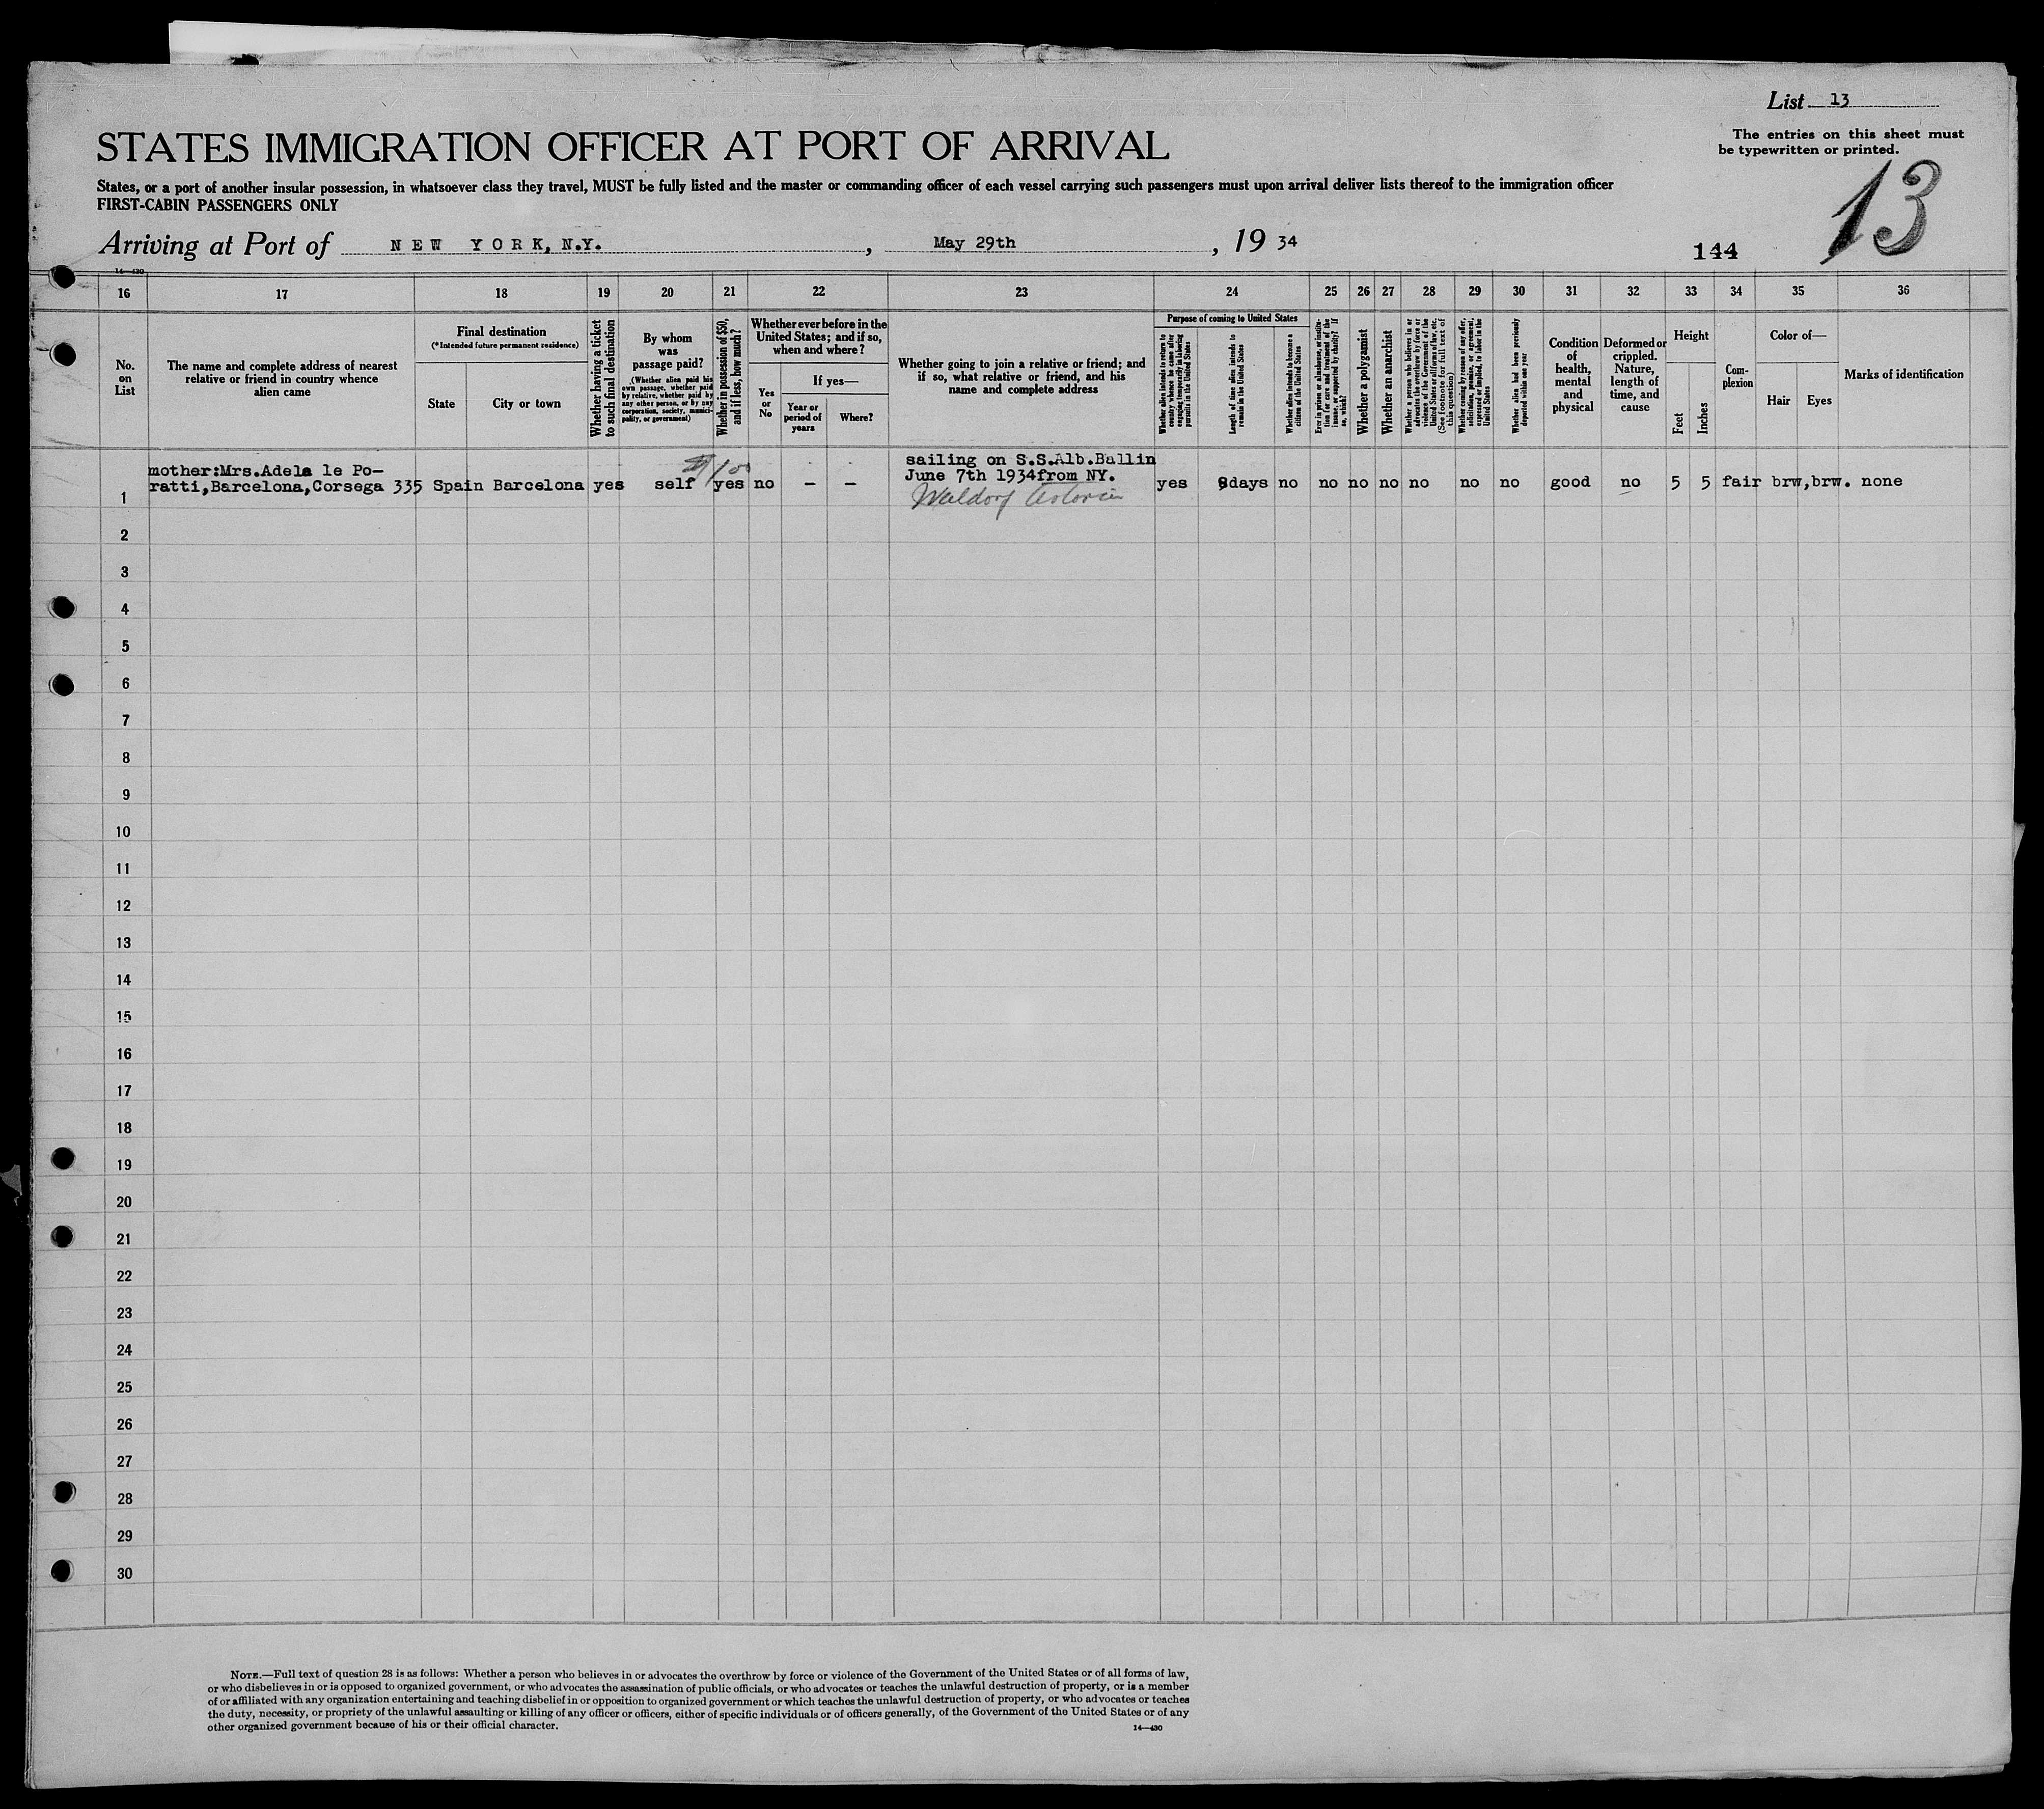 List 13
The entries on this sheet must
be typewritten or printed.
13
STATES IMMIGRATION OFFICER AT PORT OF ARRIVAL
States, or a port of another insular possession, in whatsoever class they travel, MUST be fully listed and the master or commanding officer of each vessel carrying such passengers must upon arrival deliver lists thereof to the immigration officer
FIRST-CABIN PASSENGERS ONLY
Arriving at Port of NEW YORK, N.Y. , May 29th , 19 34
144
14—430
16 17 18 19 20 21 22 23 24 25 26 27 28 29 30 31 32 33 34 35 36
No.
on
List
The name and complete address of nearest
relative or friend in country whence
alien came
Final destination
(*Intended future permanent residence)
State
City or town
Whether having a ticket
to such final destination
By whom
was
passage paid?
(Whether alien paid his
own passage, whether paid
by relative, whether paid by
any other person, or by any
corporation, society, munici-
pality, or government)
Whether in possession of $50,
and if less, how much?
Whether ever before in the
United States; and if so,
when and where?
Yes
or
No
If yes—
Year or
period of
years
Where?
Whether going to join a relative or friend; and
if so, what relative or friend, and his
name and complete address
Purpose of coming to United States
Whether alien intends to return to
country whence he came after
engaging temporarily in laboring
pursuits in the United States
Length of time alien intends to
remain in the United States
Whether alien intends to become a
citizen of the United States
Ever in prison or almshouse, or institu-
tion for care and treatment of the
insane, or supported by charity? If
so, which?
Whether a polygamist
Whether an anarchist
Whether a person who believes in or
advocates the overthrow by force or
violence of the Government of the
United States or all forms of law, etc.
(See footnote for full text of
this question)
Whether coming by reason of any offer,
solicitation, promise, or agreement,
expressed or implied, to labor in the
United States
Whether alien had been previously
deported within one year
Condition
of
health,
mental
and
physical
Deformed or
crippled.
Nature,
length of
time, and
cause
Height
Feet
Inches
Com-
plexion
Color of—
Hair
Eyes
Marks of identification
1 mother:Mrs.Adela le Po-
ratti,Barcelona,Corsega 335 Spain Barcelona yes self yes no - - sailing on S.S.Alb.Ballin
June 7th 1934from NY. yes 9days no no no no no no no good no 5 5 fair brw,brw. none
100
Waldorf Astoria
2
3
4
5
6
7
8
9
10
11
12
13
14
15
16
17
18
19
20
21
22
23
24
25
26
27
28
29
30
NOTE.—Full text of question 28 is as follows: Whether a person who believes in or advocates the overthrow by force or violence of the Government of the United States or of all forms of law,
or who disbelieves in or is opposed to organized government, or who advocates the assassination of public officials, or who advocates or teaches the unlawful destruction of property, or is a member
of or affiliated with any organization entertaining and teaching disbelief in or opposition to organized government or which teaches the unlawful destruction of property, or who advocates or teaches
the duty, necessity, or propriety of the unlawful assaulting or killing of any officer or officers, either of specific individuals or of officers generally, of the Government of the United States or of any
other organized government because of his or their official character.
14—430